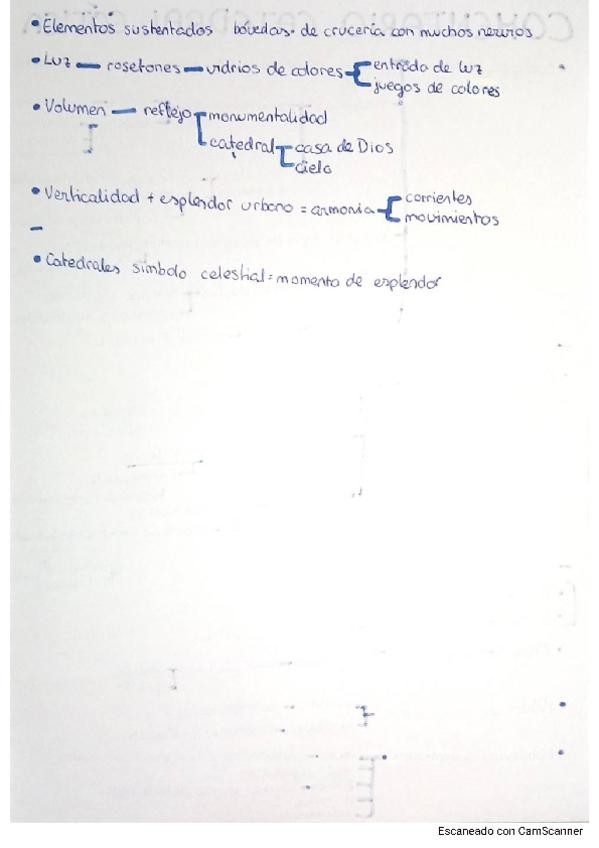 • Elementos sustentados bóvedas. de crucería con muchos nervios
• Luz — rosetones — vidrios de colores { entrada de luz
juegos de colores
• Volumen — reflejo [ monumentalidad
catedral [ casa de Dios
cielo
• Verticalidad + esplendor urbano = armonía { corrientes
movimientos
–
• Catedrales símbolo celestial = momento de esplendor
Escaneado con CamScanner